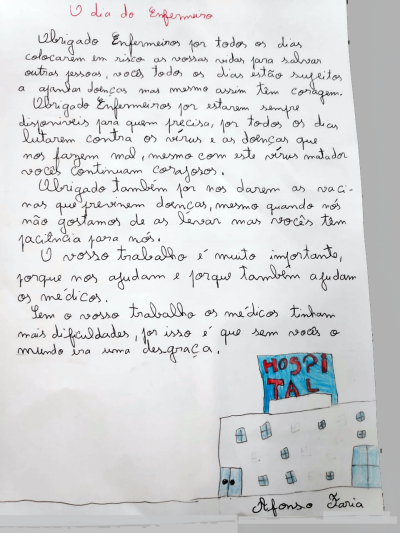 O dia do Enfermeiro
Obrigado Enfermeiros por todos os dias
colocarem em risco as vossas vidas para salvar
outras pessoas, vocês todos os dias estão sujeitos
a apanhar doenças mas mesmo assim têm coragem.
Obrigado Enfermeiros por estarem sempre
disponíveis para quem precisa, por todos os dias
lutarem contra os vírus e as doenças que
nos fazem mal, mesmo com este vírus matador
vocês continuam corajosos.
Obrigado também por nos darem as vaci-
nas que previnem doenças, mesmo quando nós
não gostamos de as levar mas vocês têm
paciência para nós.
O vosso trabalho é muito importante,
porque nos ajudam e porque também ajudam
os médicos.
Sem o vosso trabalho os médicos tinham
mais dificuldades, por isso é que sem vocês o
mundo era uma desgraça.
HOSPI
TAL
Afonso Faria